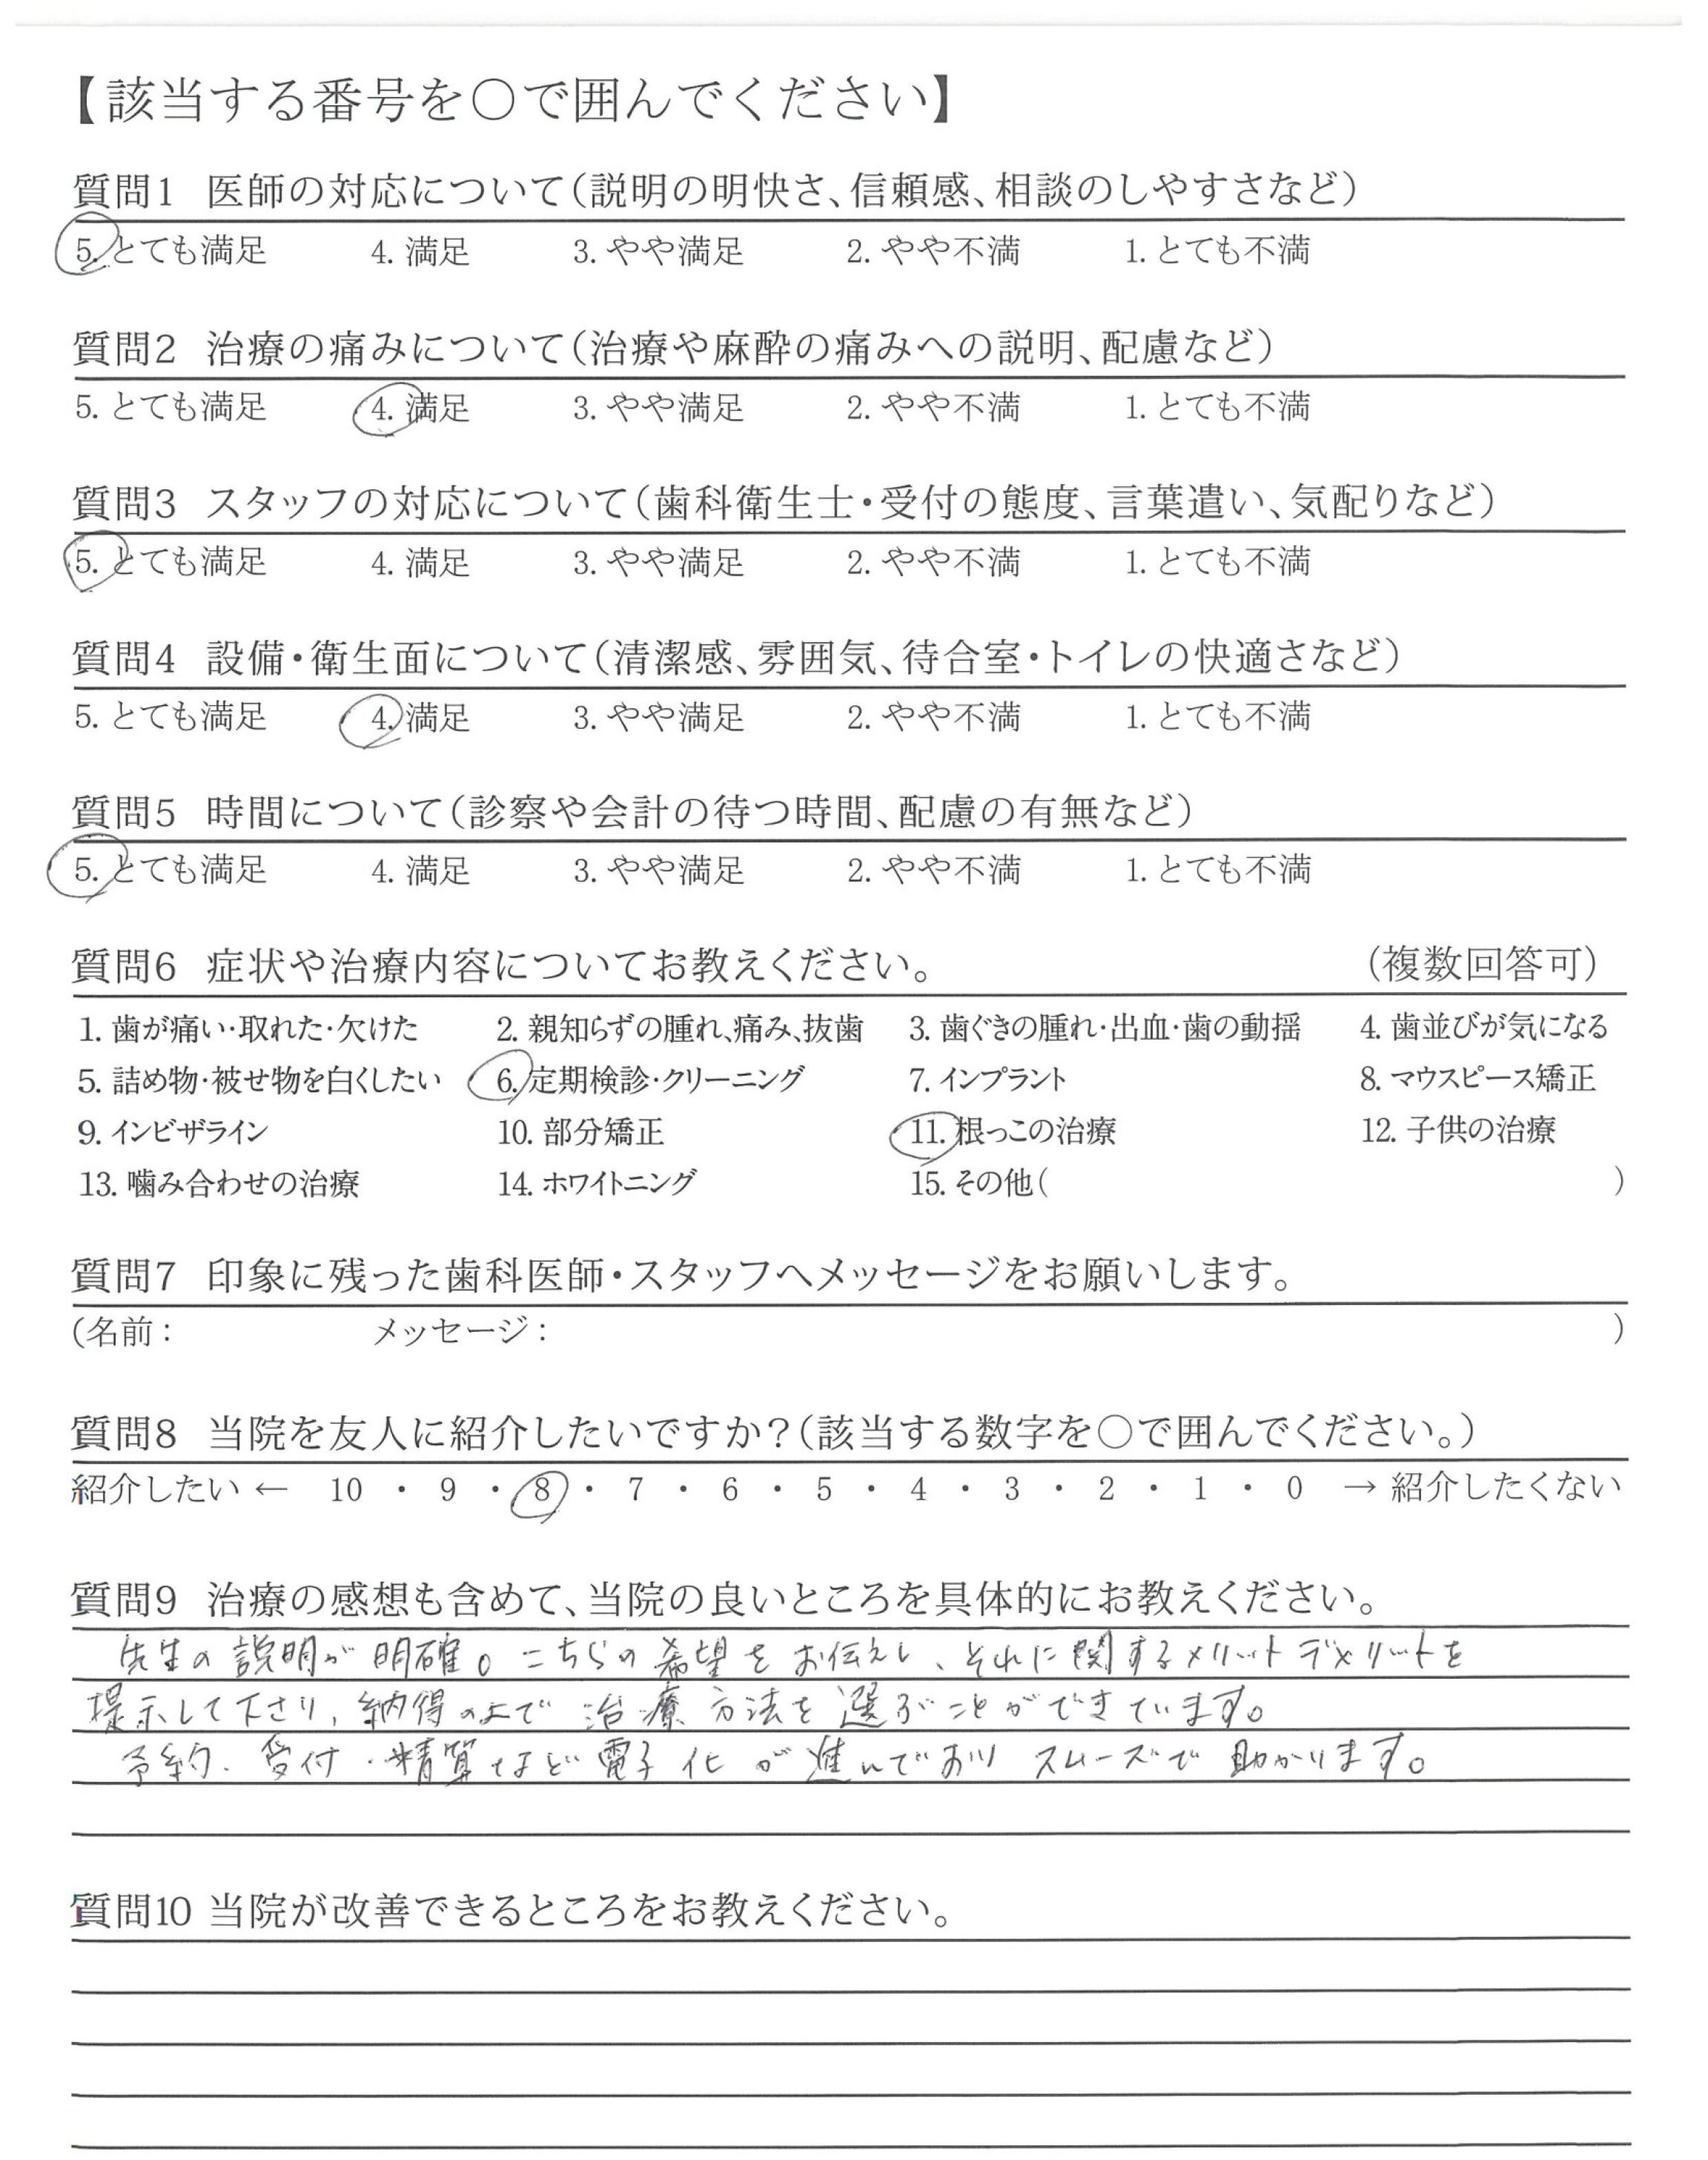 【該当する番号を○で囲んでください】
質問1 医師の対応について(説明の明快さ、信頼感、相談のしやすさなど)
5. とても満足 4. 満足 3. やや満足 2. やや不満 1. とても不満
質問2 治療の痛みについて(治療や麻酔の痛みへの説明、配慮など)
5. とても満足 4. 満足 3. やや満足 2. やや不満 1. とても不満
質問3 スタッフの対応について(歯科衛生士・受付の態度、言葉遣い、気配りなど)
5. とても満足 4. 満足 3. やや満足 2. やや不満 1. とても不満
質問4 設備・衛生面について(清潔感、雰囲気、待合室・トイレの快適さなど)
5. とても満足 4. 満足 3. やや満足 2. やや不満 1. とても不満
質問5 時間について(診察や会計の待つ時間、配慮の有無など)
5. とても満足 4. 満足 3. やや満足 2. やや不満 1. とても不満
質問6 症状や治療内容についてお教えください。 (複数回答可)
1. 歯が痛い・取れた・欠けた 2. 親知らずの腫れ、痛み、抜歯 3. 歯ぐきの腫れ・出血・歯の動揺 4. 歯並びが気になる
5. 詰め物・被せ物を白くしたい 6. 定期検診・クリーニング 7. インプラント 8. マウスピース矯正
9. インビザライン 10. 部分矯正 11. 根っこの治療 12. 子供の治療
13. 噛み合わせの治療 14. ホワイトニング 15. その他( )
質問7 印象に残った歯科医師・スタッフへメッセージをお願いします。
(名前: メッセージ: )
質問8 当院を友人に紹介したいですか?(該当する数字を○で囲んでください。)
紹介したい ← 10 ・ 9 ・ 8 ・ 7 ・ 6 ・ 5 ・ 4 ・ 3 ・ 2 ・ 1 ・ 0 → 紹介したくない
質問9 治療の感想も含めて、当院の良いところを具体的にお教えください。
先生の説明が明確。こちらの希望をお伝えし、それに関するメリットデメリットを
提示して下さり、納得の上で治療方法を選ぶことができています。
予約、受付・精算など電子化が進んでおりスムーズで助かります。
質問10 当院が改善できるところをお教えください。